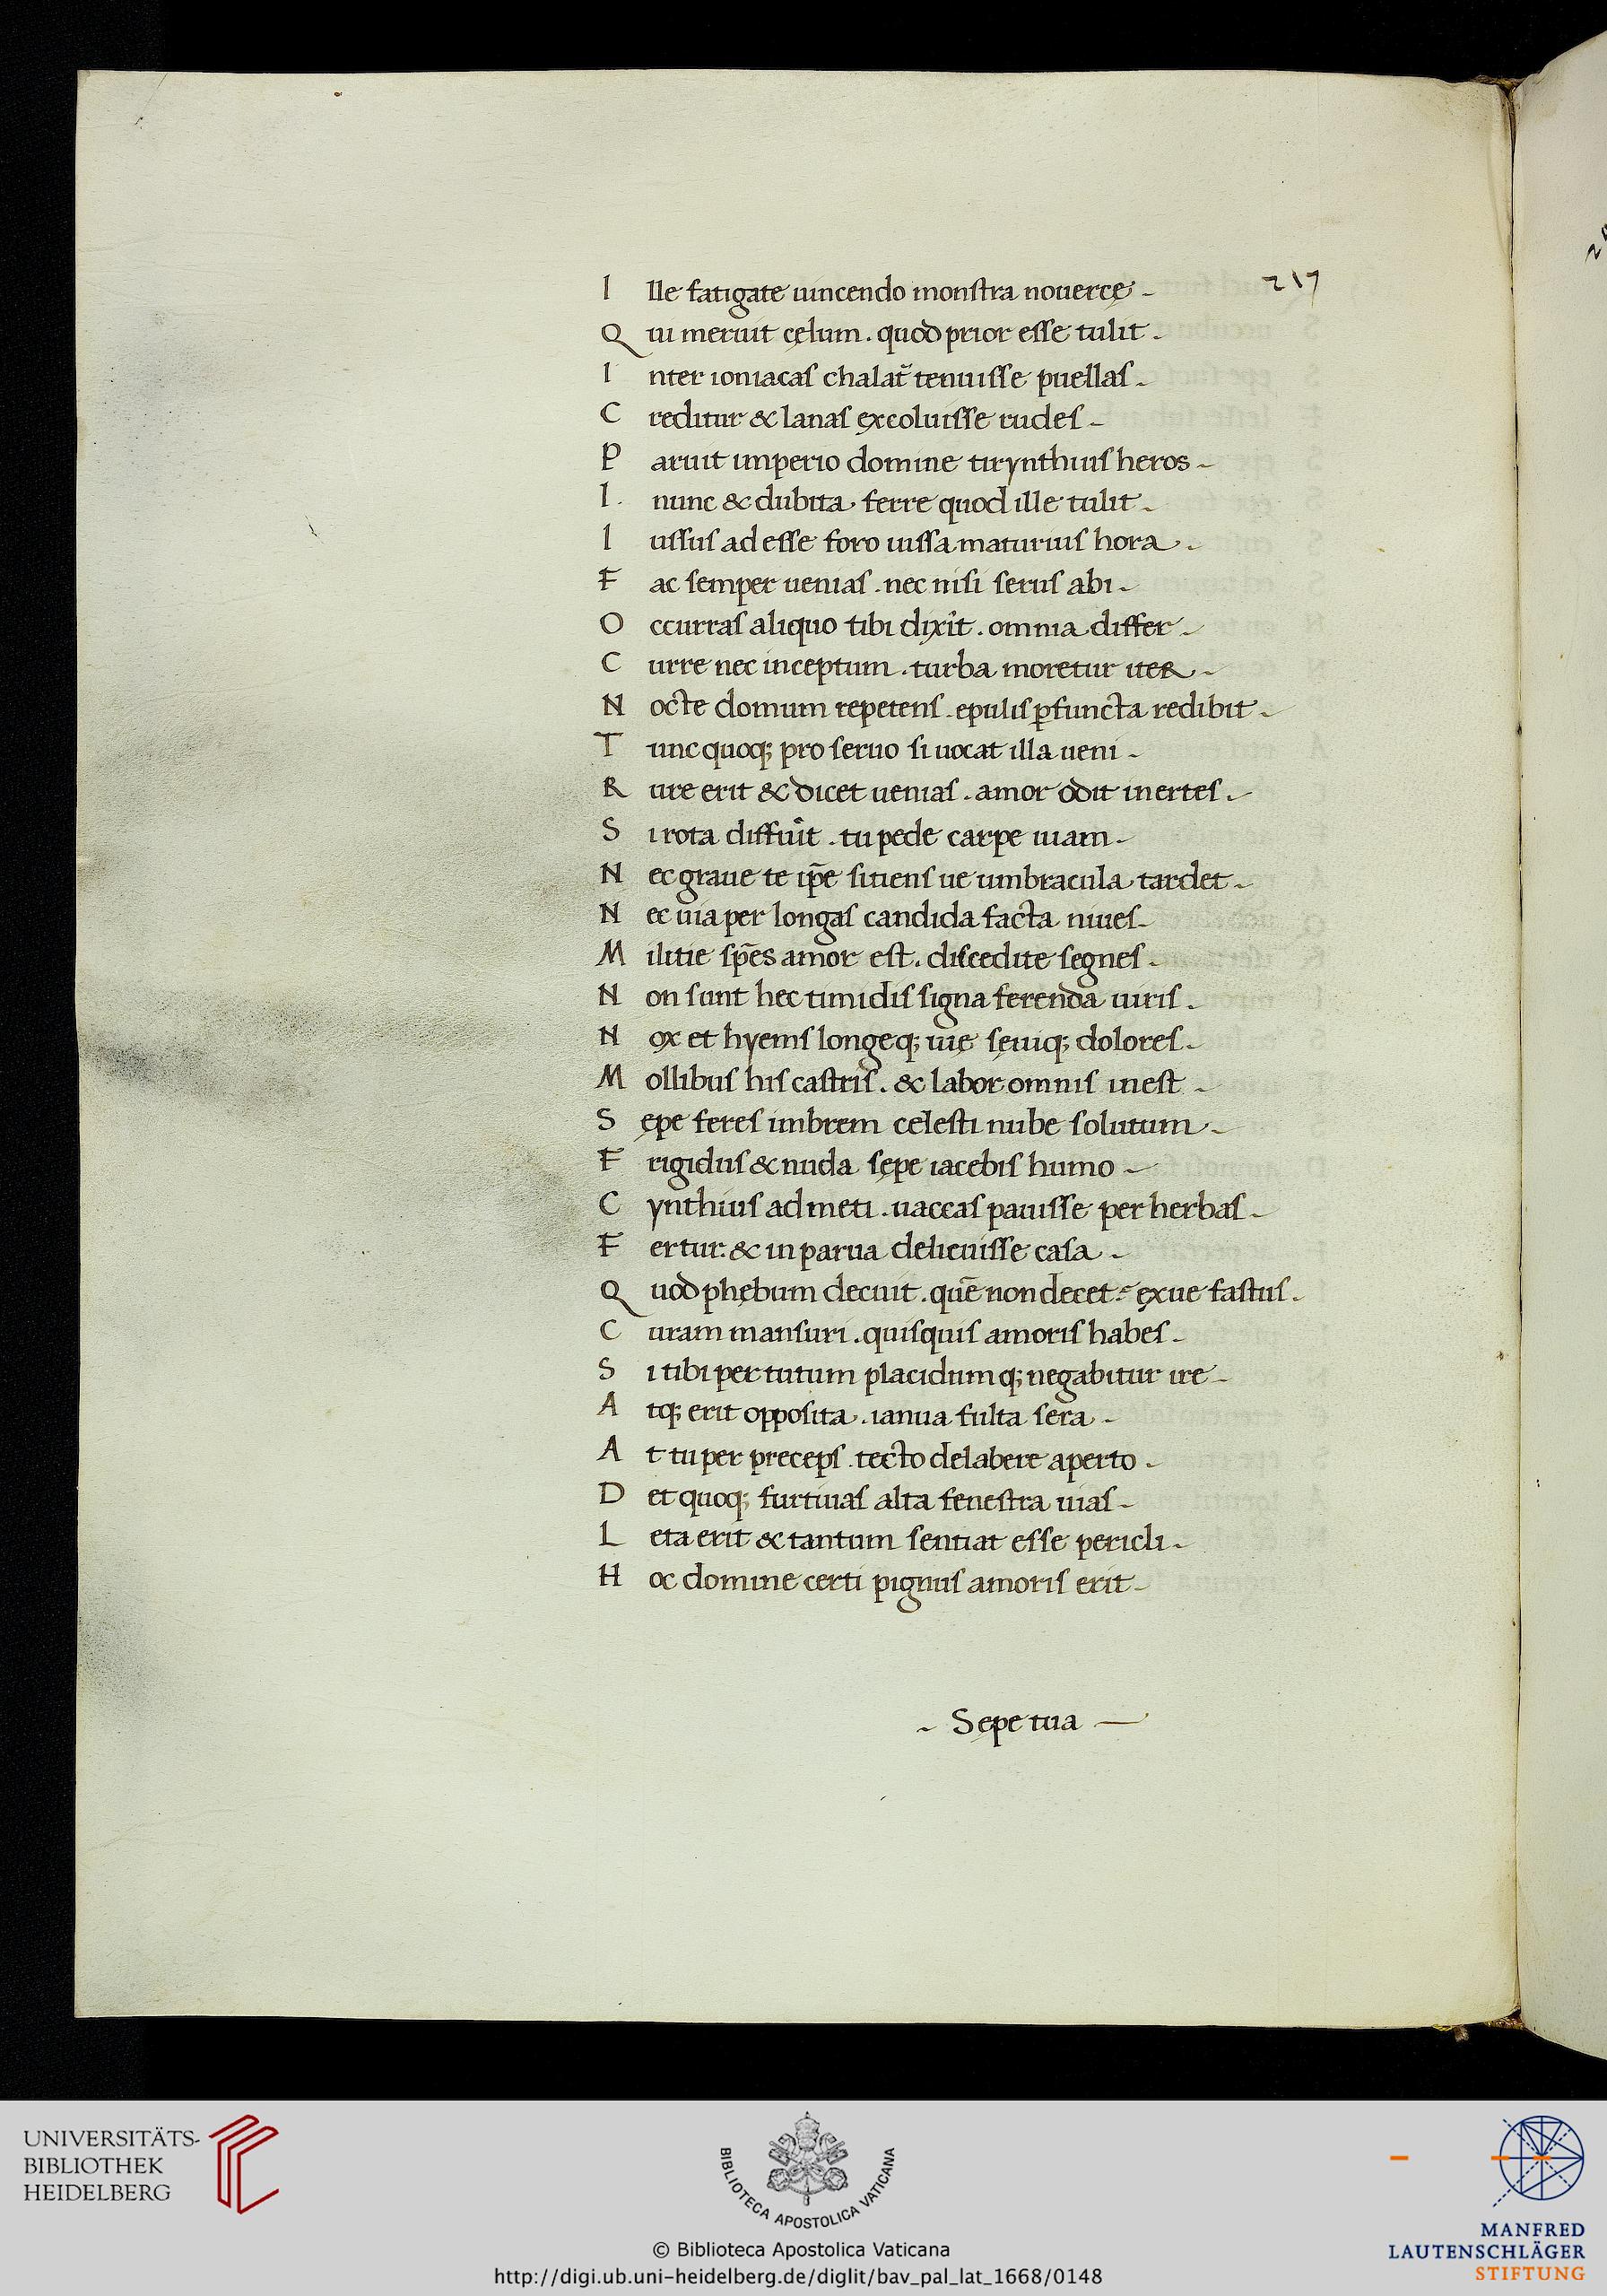 217
I lle fatigate uincendo monstra nouercę
Q ui meruit cęlum . quod prior esse tulit
I nter ioniacas chalat̄ tenuisse puellas
C reditur & lanas excoluisse rudes
P aruit imperio domine tirynthius heros
I . nunc & dubita ferre quod ille tulit
I ussus ad esse foro iussa maturius hora
F ac semper uenias . nec nisi serus abi
O ccurras aliquo tibi dixit . omnia differ
C urre nec inceptum . turba moretur iter
N octe domum repetens . epulis ꝑfuncta redibit
T unc quoq; pro seruo si uocat illa ueni
R ure erit & dicet uenias . amor odit inertes
S i rota diffuit . tu pede carpe uiam
N ec graue te ip̄e sitiens ue umbracula tardet
N ec uia per longas candida facta niues
M ilitie sp̄es amor est . discedite segnes
N on sunt hec timidis signa ferenda uiris
N ox et hyems longeq; uię sęuiq; dolores
M ollibus his castris . & labor omnis inest
S ępe feres imbrem celesti nube solutum
F rigidus & nuda sępe iacebis humo
C ynthius admeti . uaccas pauisse per herbas
F ertur . & in parua delieuisse casa
Q uod phębum decuit . quē non decet . exue fastus
C uram mansuri . quisquis amoris habes
S i tibi per tutum placidumq; negabitur ire
A tq; erit opposita . ianua fulta sera
A t tu per preceps . tecto delabere aperto
D et quoq; furtiuas alta fenestra uias
L eta erit & tantum sentiat esse pericli
H oc domine certi pignus amoris erit
Sepe tua
UNIVERSITÄTS-
BIBLIOTHEK
HEIDELBERG
BIBLIOTECA APOSTOLICA VATICANA
© Biblioteca Apostolica Vaticana
http://digi.ub.uni-heidelberg.de/diglit/bav_pal_lat_1668/0148
MANFRED
LAUTENSCHLÄGER
STIFTUNG